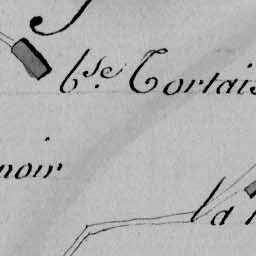 b.se Tortais
noir
la